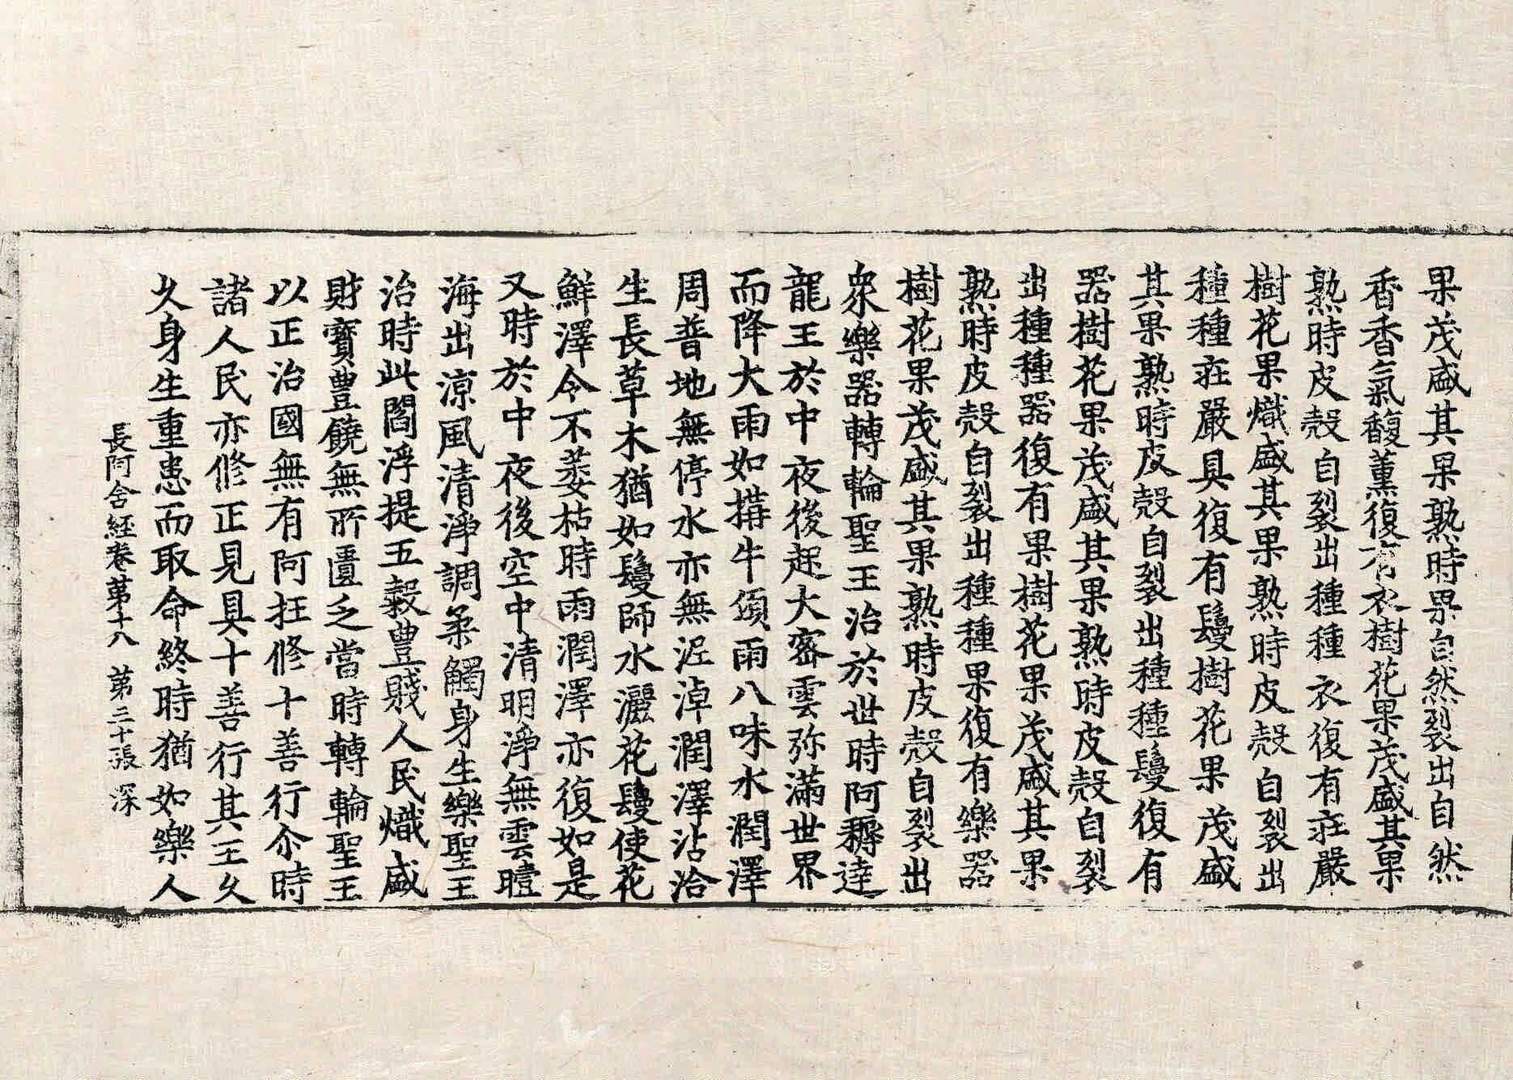 果茂盛其果熟時果自然裂出自然
香香氣馥薰復有衣樹花果茂盛其果
熟時皮殼自裂出種種衣復有莊嚴
樹花果熾盛其果熟時皮殼自裂出
種種莊嚴具復有鬘樹花果茂盛
其果熟時皮殼自裂出種種鬘復有
器樹花果茂盛其果熟時皮殼自裂
出種種器復有果樹花果茂盛其果
熟時皮殼自裂出種種果復有樂器
樹花果茂盛其果熟時皮殼自裂出
衆樂器轉輪聖王治於世時阿耨達
龍王於中夜後起大密雲弥滿世界
而降大雨如搆牛頃雨八味水潤澤
周普地無停水亦無泥淖潤澤沾洽
生長草木猶如鬘師水灑花鬘使花
鮮澤令不萎枯時雨潤澤亦復如是
又時於中夜後空中清明淨無雲曀
海出涼風清淨調柔觸身生樂聖王
治時此閻浮提五穀豊賤人民熾盛
財寶豊饒無所匱乏當時轉輪聖王
以正治國無有阿抂修十善行尒時
諸人民亦修正見具十善行其王久
久身生重患而取命終時猶如樂人
長阿含經卷苐十八 苐三十張 深